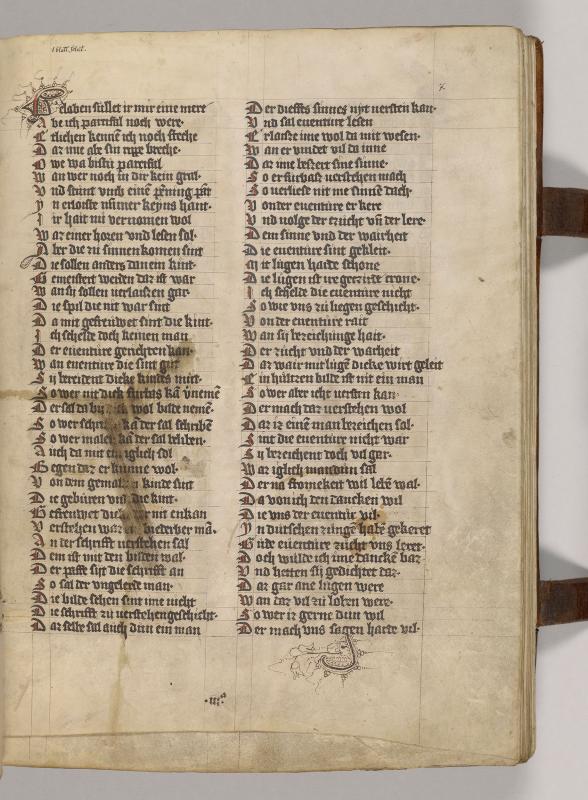 1 blatt. fehlt.
x
Geloben sullet ir mir eine mere
Abe ich parcifal noch were
Erlichen kenne ich noch steche
Daz ime abe sin ripe breche
Owe wa bistu parcifal
Wan wer noch in dir kein gral
Vnd stunt vmb einē
Yn erloste nūmer keyns hant
Ir hait mi vernomen wol
Waz einer horen vnd lesen sol
Aber die zu sinnen komen sint
Die sollen anders dan ein kint
Gemeistert werden daz ist war
Wan sij sollen verlaiszen gar
Die spil die nit war sint
Da mit gefreuwet sint die kint
Ich schelde doch keinen man
Der euentüre gerichten kan
Wan euentüre die sint gut
Sij bereident dicke kindes mut
So wer nit dick furbas kā vnemē
Der sal da bij wol bilde nemē
So wer schrift kā der sal schribē
So wer malen kā der sal bliben
Auch da mit ein iglich sol
Gegen daz er kunne wol
Von dem gemalten kinde sint
Die gebüren vnd die kint
Gefreuwet dicke wer nit enkan
Verstehen waz ein biederber mā
An der schrifft verstehen sal
Dem ist mit den bilden wal
Der paffe sijt die schrifft an
So sal der vngelerde man
Die bilde sehen sint ime nicht
Die schrifft zu verstehen geschicht
Daz selbe sal auch dun ein man
Der dieffes sinnes nyt versten kan
Vnd sal euentüre lesen
Erlaisze ime wol da mit wesen
Wan er vindet vil da inne
Daz ime beszert sine sinne
So er furbasz verstehen mach
So verliese nit me sinne dach
Von der euentüre er kere
Vnd volge der zucht vn der lere
Dem sinne vnd der wairheit
Die euentüre sint gekleit
Mit lügen harde schone
Die lügen ist ire gezirde crone
Ich schelde die euentüre nicht
So wie vns zu liegen geschicht
Von der euentüre rait
Wan sij bezeichinge hait
Der zucht vnd der warheit
Daz wair mit lügē dicke wirt geleit
Ein hültzen bilde ist nit ein man
So wer aber icht versten kan
Der mach daz verstehen wol
Daz iz einē man bezeichen sol
Sint die euentüre nicht war
Sij bezeichent doch vil gar
Waz iglich man dun sal
Der na fromekeit wil lebē wal
Da von ich den dancken wil
Die vns der euentür vil
Yn dutschen züngē habē gekeret
Gude euentüre zücht vns leret
Doch wülde ich ime danckē baz
Vnd hetten sij gedichtet daz
Daz gar ane lügen were
Wan daz vil zu loben were
So wer iz gerne dun wil
Der mach vns sagen harte vil